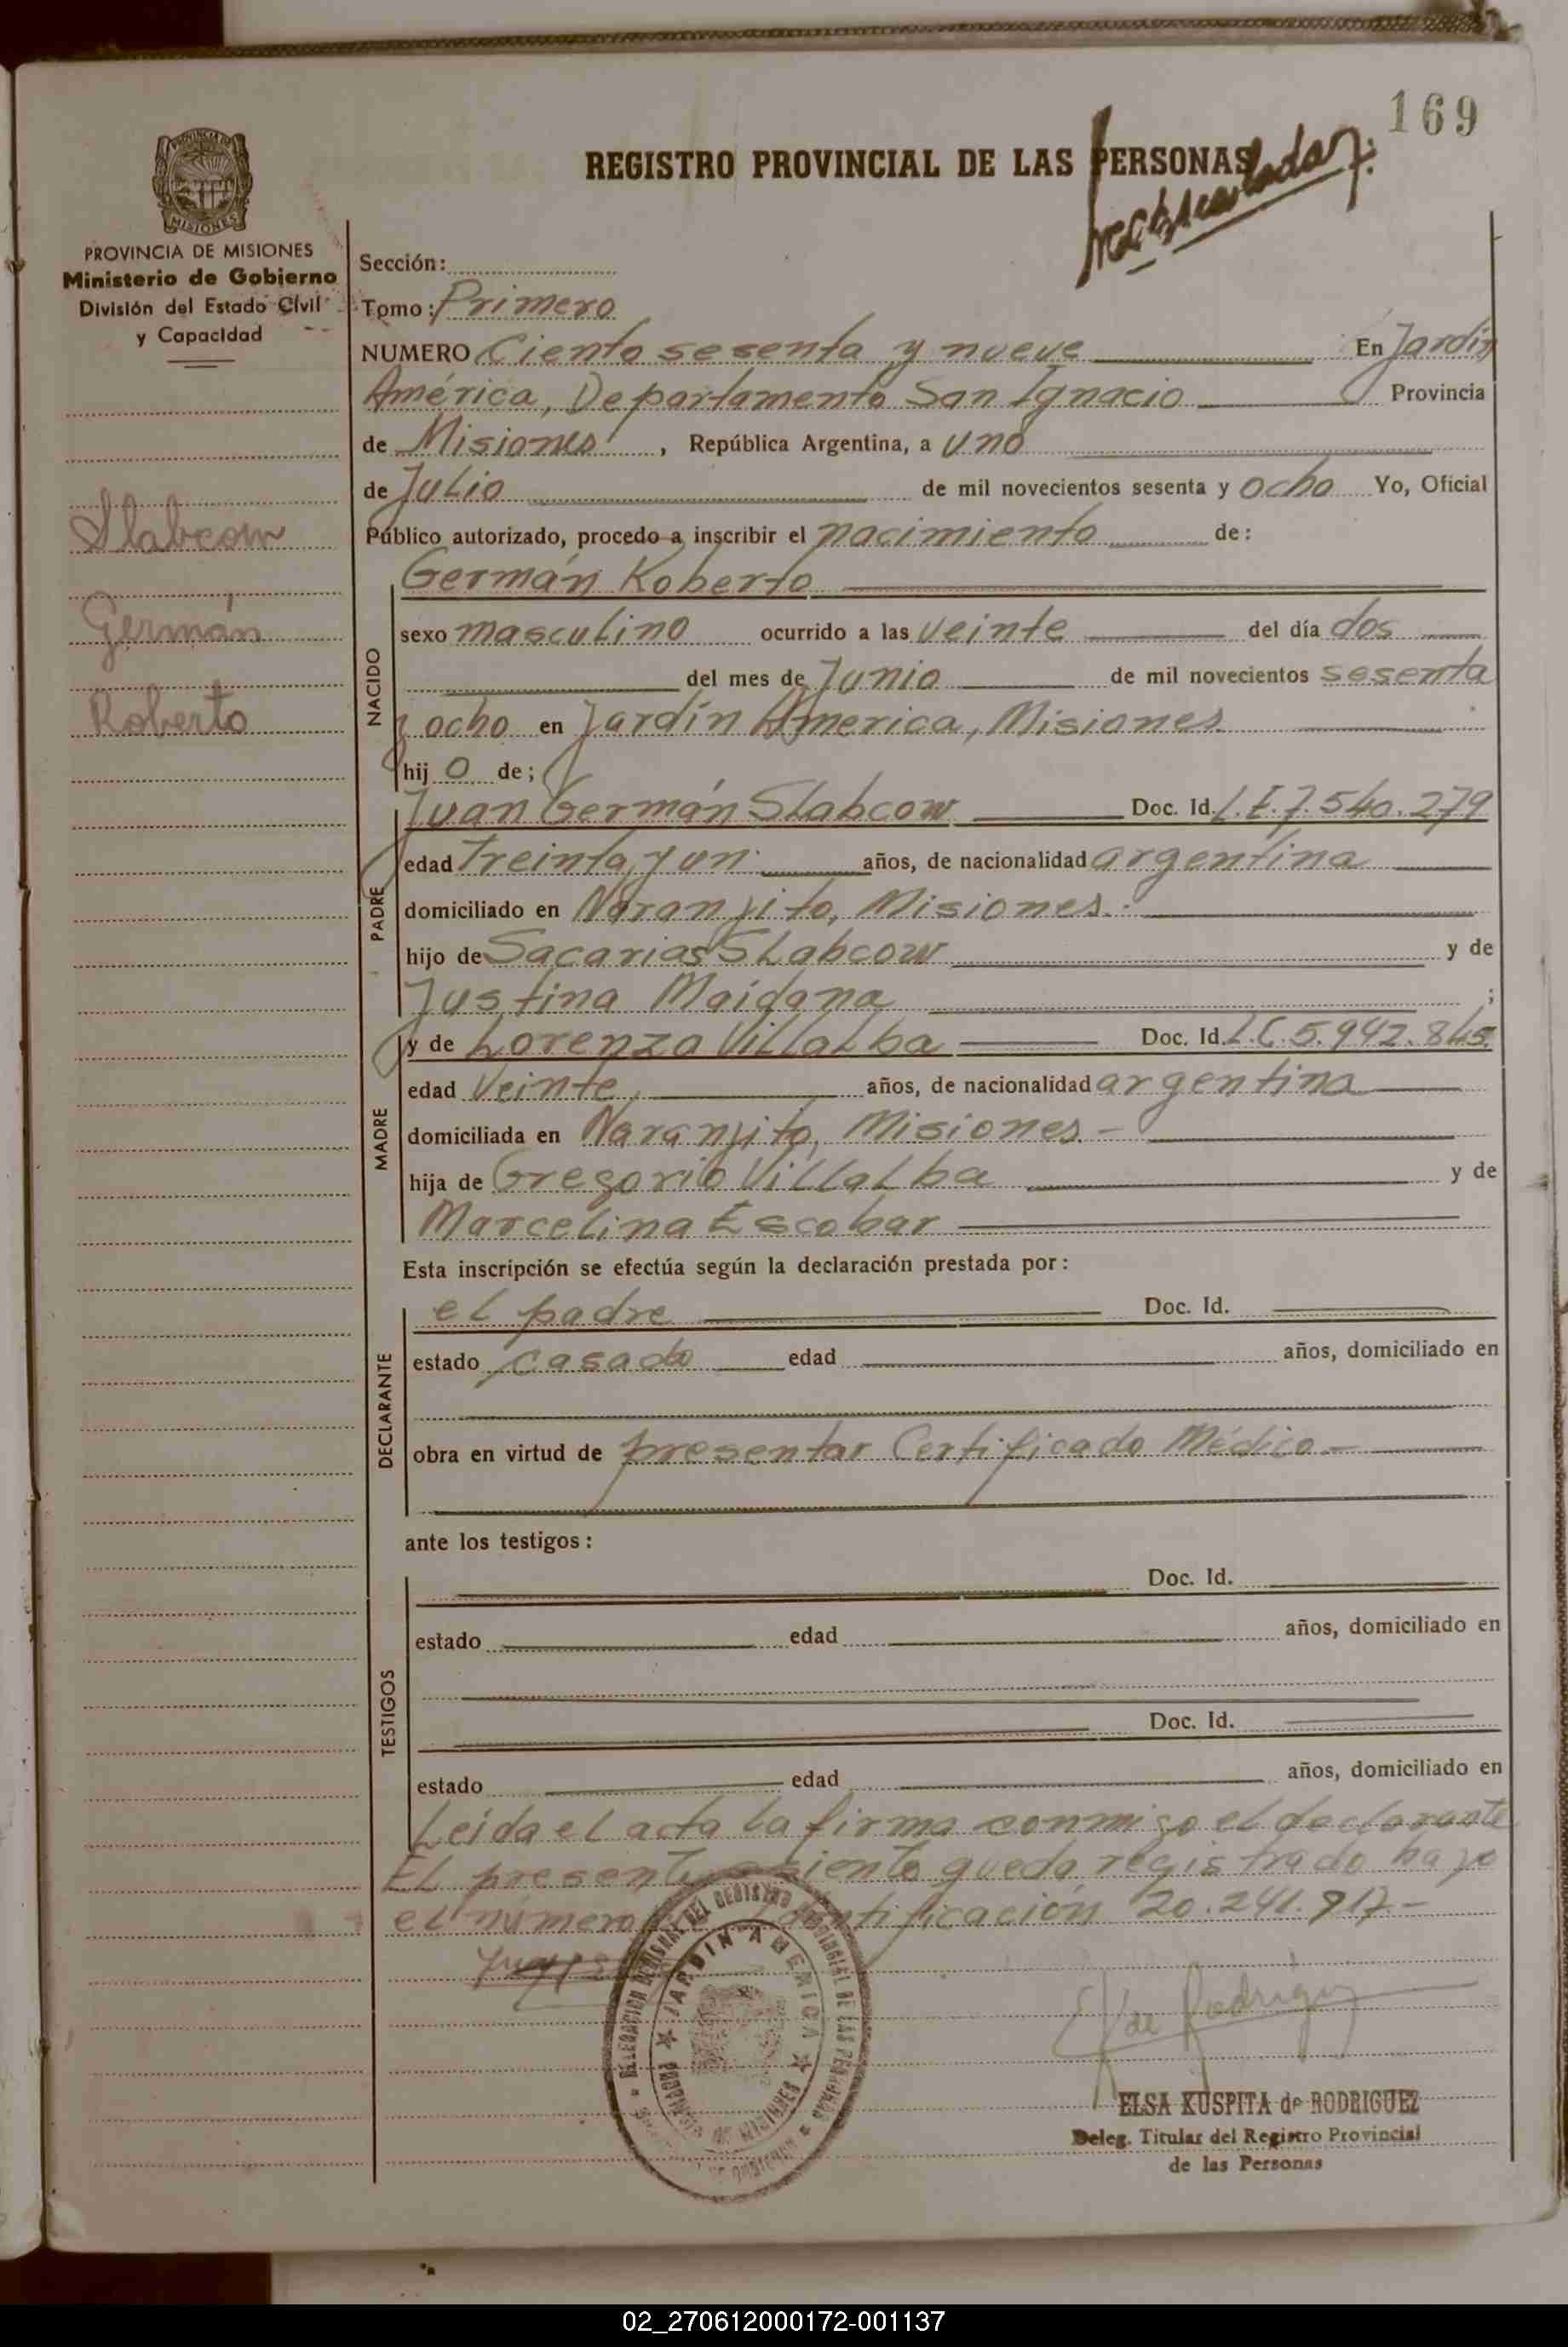 169
REGISTRO PROVINCIAL DE LAS PERSONAS
PROVINCIA DE MISIONES
Ministerio de Gobierno
División del Estado Civil
y Capacidad
Slabcow
Germán
Roberto
Sección:
Tomo: Primero
NUMERO Ciento sesenta y nueve En Jardín
América, Departamento San Ignacio Provincia
de Misiones, República Argentina, a uno
de Julio de mil novecientos sesenta y ocho Yo, Oficial
Público autorizado, procedo a inscribir el nacimiento de:
NACIDO
Germán Roberto
sexo masculino ocurrido a las veinte del día dos
del mes de Junio de mil novecientos sesenta
y ocho en Jardín America, Misiones.
hijo de;
PADRE
Juan Germán Slabcow Doc. Id. L.E. 7.540.279
edad treinta y un años, de nacionalidad argentina
domiciliado en Naranjito, Misiones.
hijo de Sacarias Slabcow y de
Justina Maidana ;
MADRE
y de Lorenza Villalba Doc. Id. L.C. 5.942.845.
edad veinte, años, de nacionalidad argentina
domiciliada en Naranjito, Misiones.-
hija de Gregorio Villalba y de
Marcelina Escobar
Esta inscripción se efectúa según la declaración prestada por:
DECLARANTE
el padre Doc. Id.
estado casado edad años, domiciliado en
obra en virtud de presentar Certificado Médico-
ante los testigos:
TESTIGOS
Doc. Id.
estado edad años, domiciliado en
Doc. Id.
estado edad años, domiciliado en
Leída el acta la firma conmigo el declarante
El presente asiento queda registrado bajo
el número 20.241.917-
JARDIN AMERICA
PROVINCIA DE MISIONES
E K de Rodriguez
ELSA KUSPITA de RODRIGUEZ
Deleg. Titular del Registro Provincial
de las Personas
02_270612000172-001137